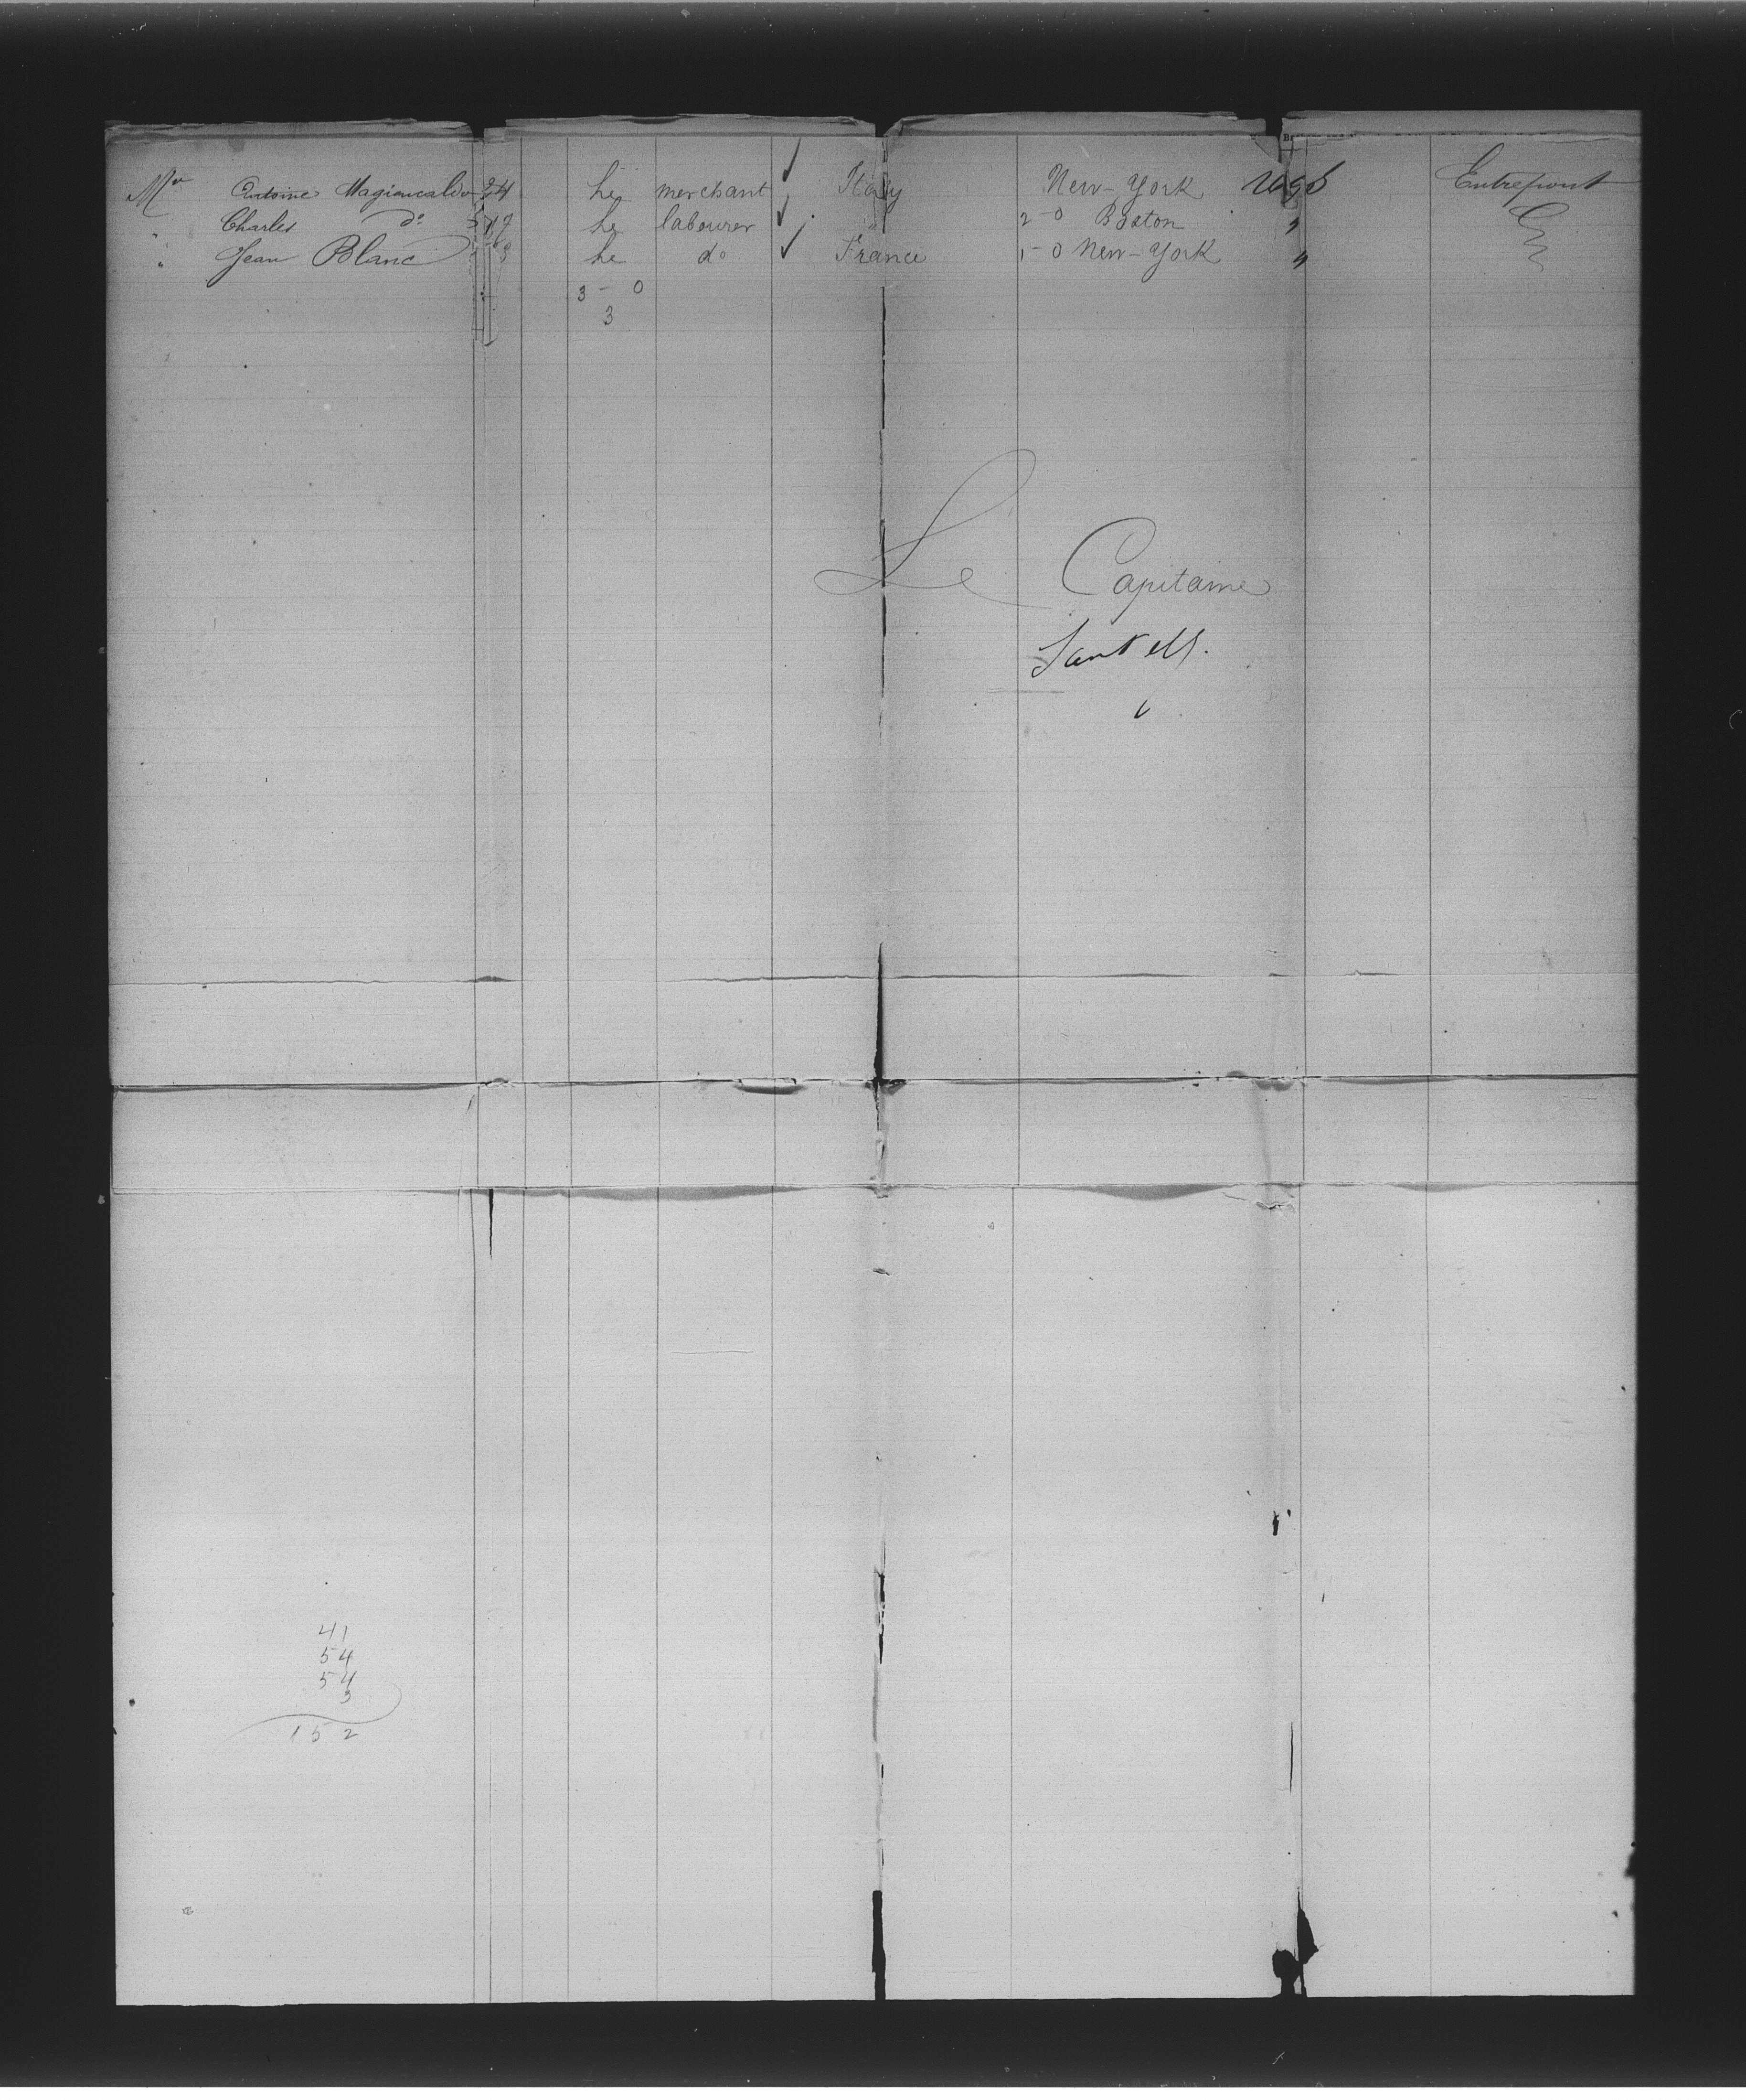 Mr Antoine Magioncalda 24 he merchant Italy New-York Entrepont
" Charles do he labourer " 2-0 Boston "
" Jean Blanc he do France 1-0 New-York "
3 - 0
3
Le Capitaine
41
54
54
3
152